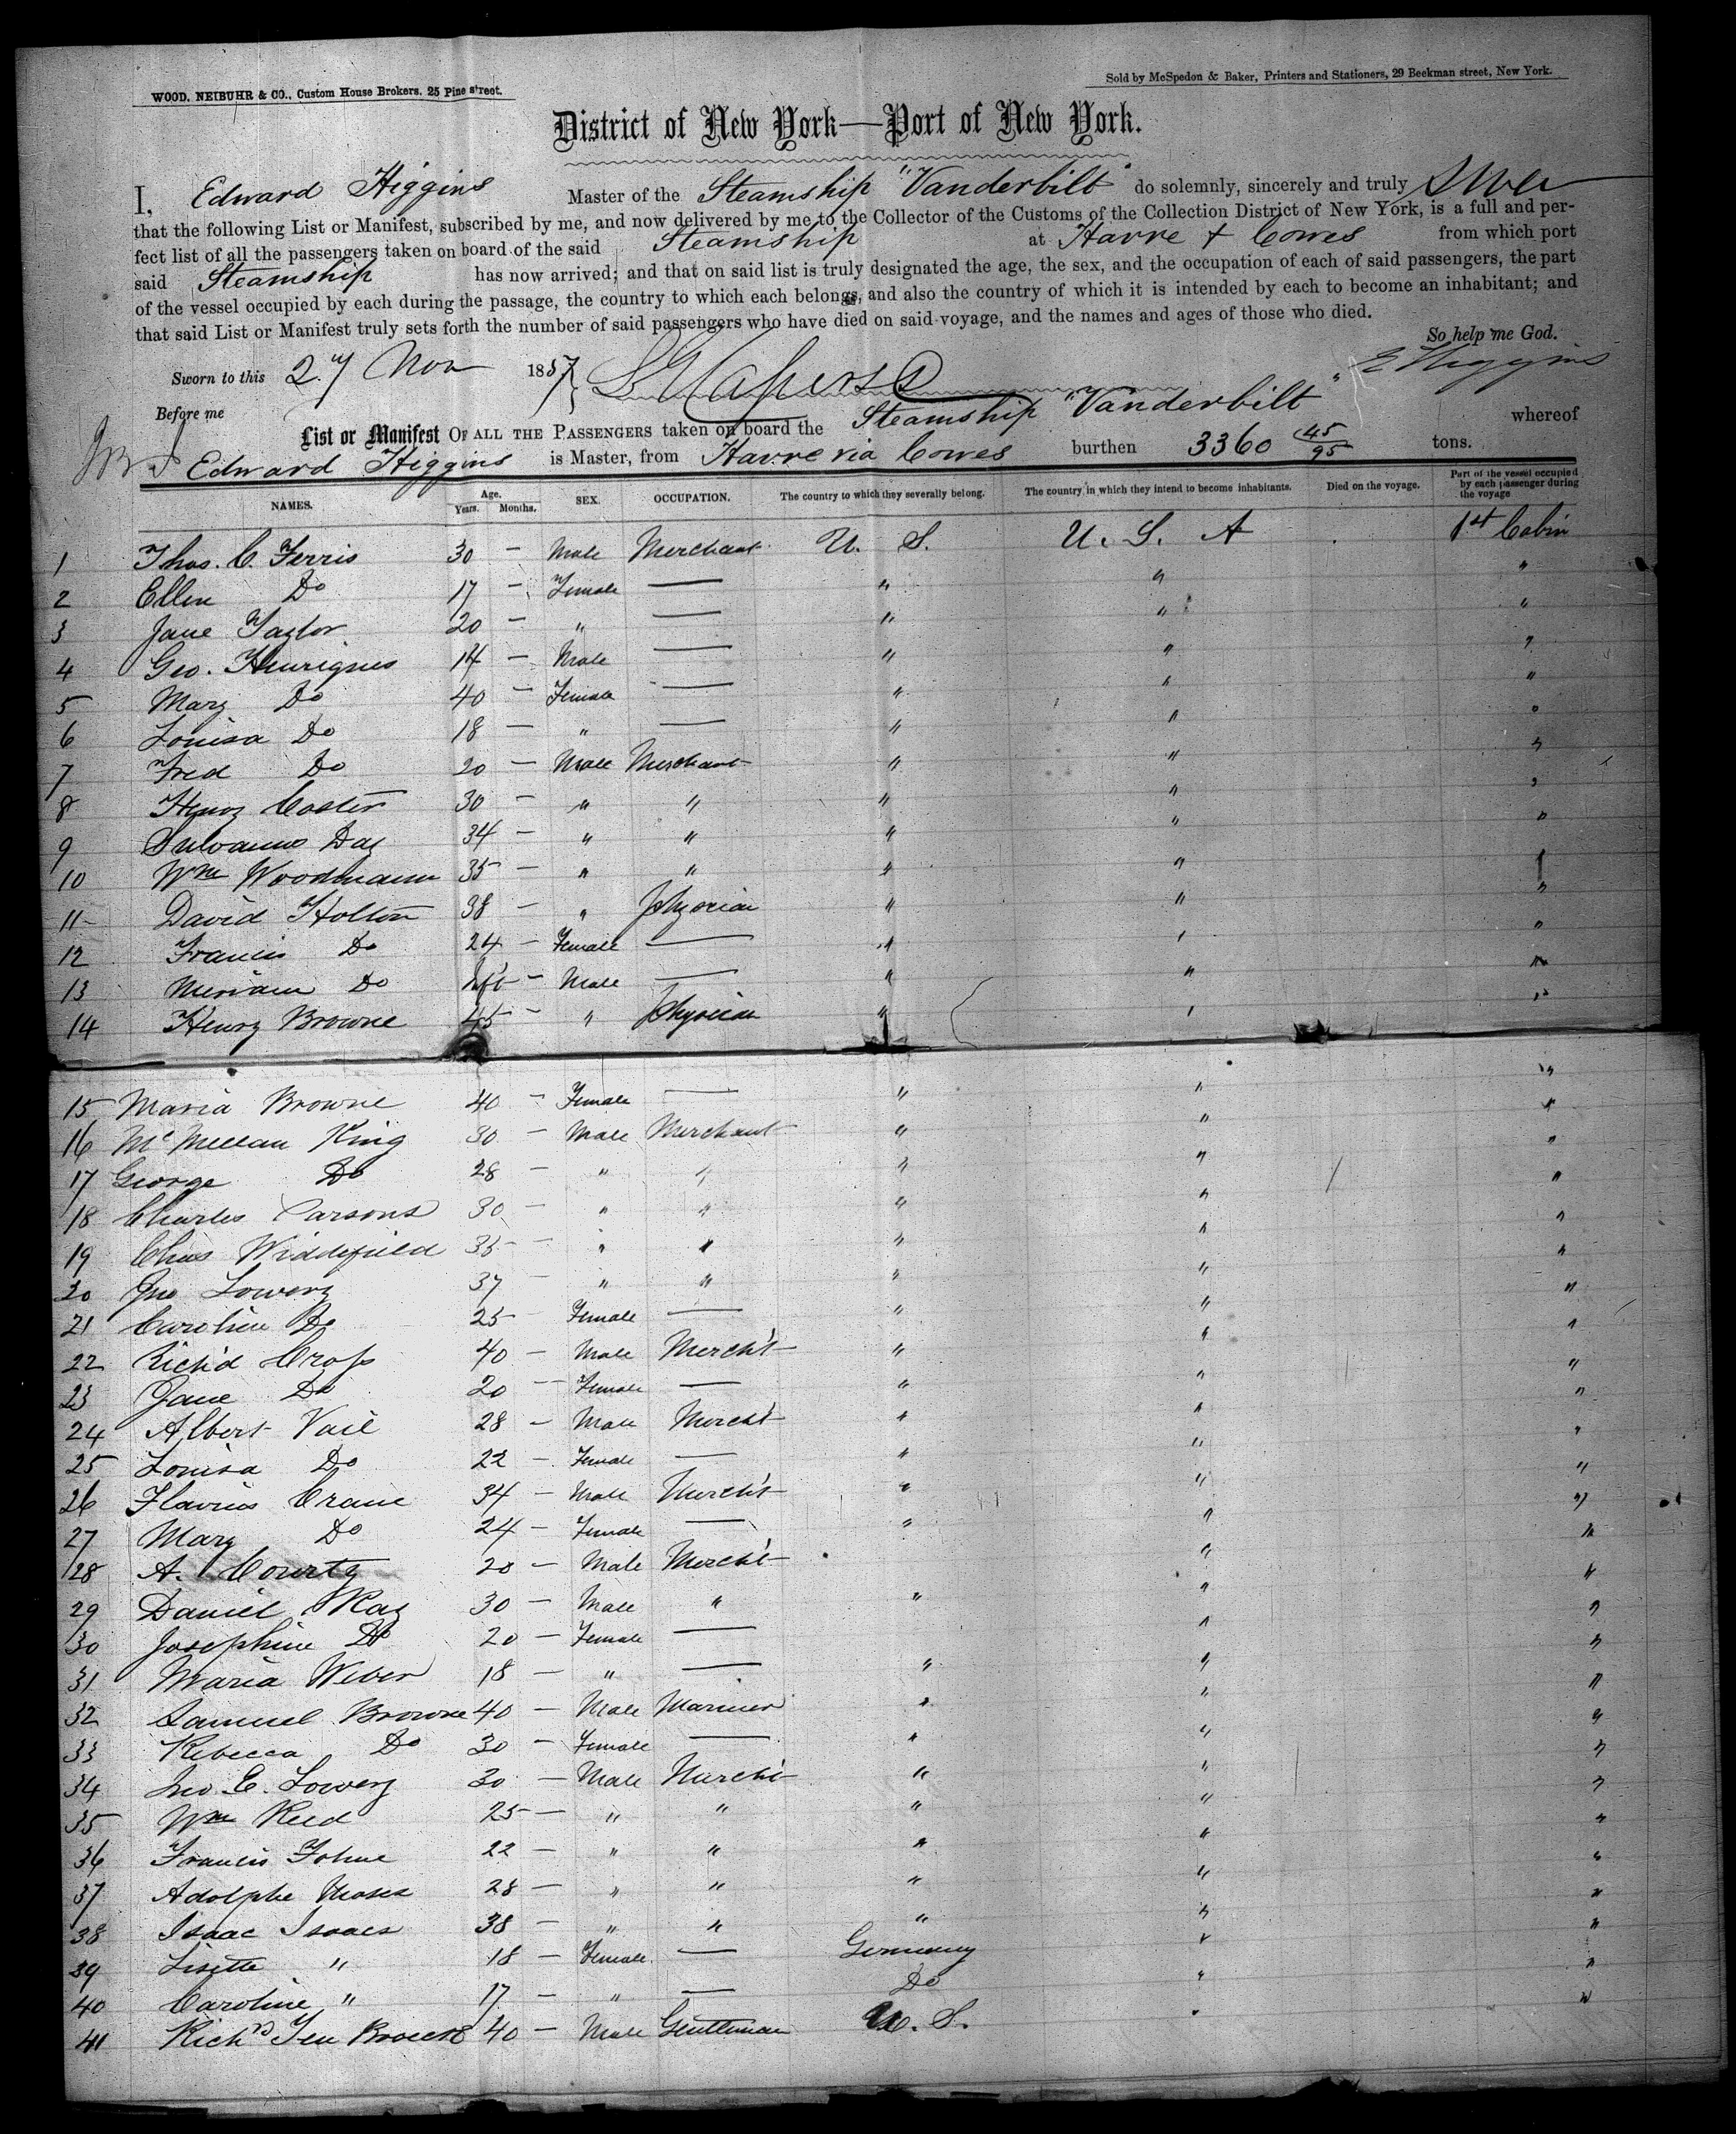 WOOD, NEIBUHR & CO., Custom House Brokers. 25 Pine street.
Sold by McSpedon & Baker, Printers and Stationers, 29 Beekman street, New York.
District of New York—Port of New York.
I, Edward Higgins Master of the Steamship "Vanderbilt" do solemnly, sincerely and truly swear
that the following List or Manifest, subscribed by me, and now delivered by me to the Collector of the Customs of the Collection District of New York, is a full and per-
fect list of all the passengers taken on board of the said Steamship at Havre & Cowes from which port
said Steamship has now arrived; and that on said list is truly designated the age, the sex, and the occupation of each of said passengers, the part
of the vessel occupied by each during the passage, the country to which each belongs, and also the country of which it is intended by each to become an inhabitant; and
that said List or Manifest truly sets forth the number of said passengers who have died on said voyage, and the names and ages of those who died.
So help me God.
Sworn to this 2 Nov 1857 E Higgins
Before me
List or Manifest OF ALL THE PASSENGERS taken on board the Steamship "Vanderbilt" whereof
Edward Higgins is Master, from Havre via Cowes burthen 3360 45/95 tons.
NAMES. Age. Years. Months. SEX. OCCUPATION. The country to which they severally belong. The country in which they intend to become inhabitants. Died on the voyage. Part of the vessel occupied by each passenger during the voyage
1 Thos. C. Ferris 30 – Male Merchant U. S. U. S. A 1st Cabin
2 Ellen Do 17 – Female — " " "
3 Jane Taylor 20 – " — " " "
4 Geo. Henriques 14 – Male — " " "
5 Mary Do 40 – Female — " " "
6 Louisa Do 18 – " — " " "
7 Fred Do 20 – Male Merchant " " "
8 Henry Coster 30 – " " " " "
9 Day 34 – " " " " "
10 Wm Woodmann 35 – " " " " "
11 David Holton 38 – " Physician " " "
12 Francis Do 24 – Female — " " "
13 Miriam Do – Male — " " "
14 Henry Browne 45 – " Physician " " "
15 Maria Browne 40 – Female — " " "
16 McMellan King 30 – Male Merchant " " "
17 George Do 28 – " " " " "
18 Charles Parsons 30 – " " " " "
19 Chas Widdefield 35 – " " " " "
20 Jno Lowery 37 – " " " " "
21 Caroline Do 25 – Female — " " "
22 Rich'd Cross 40 – Male Merch't " " "
23 Jane Do 20 – Female — " " "
24 Albert Vail 28 – Male Merch't " " "
25 Louisa Do 22 – Female — " " "
26 Flavius Crane 34 – Male Merch't " " "
27 Mary Do 24 – Female — " " "
28 A. Courty 20 – Male Merch't " "
29 Daniel Kay 30 – Male " " " "
30 Josephine Do 20 – Female — " "
31 Maria Weber 18 – " — " " "
32 Samuel Browne 40 – Male Mariner " " "
33 Rebecca Do 30 – Female — " " "
34 Jno. E. Lowery 30 – Male Merch't " " "
35 Wm Reed 25 – " " " " "
36 Francis Johne 22 – " " " " "
37 Adolphe Moses 28 – " " " " "
38 Isaac Isaacs 38 – " " " " "
39 Lisette " 18 – Female — Germany " "
40 Caroline " 17 – " — Do " "
41 Richd Ten Broeck 40 – Male Gentleman U. S. " "